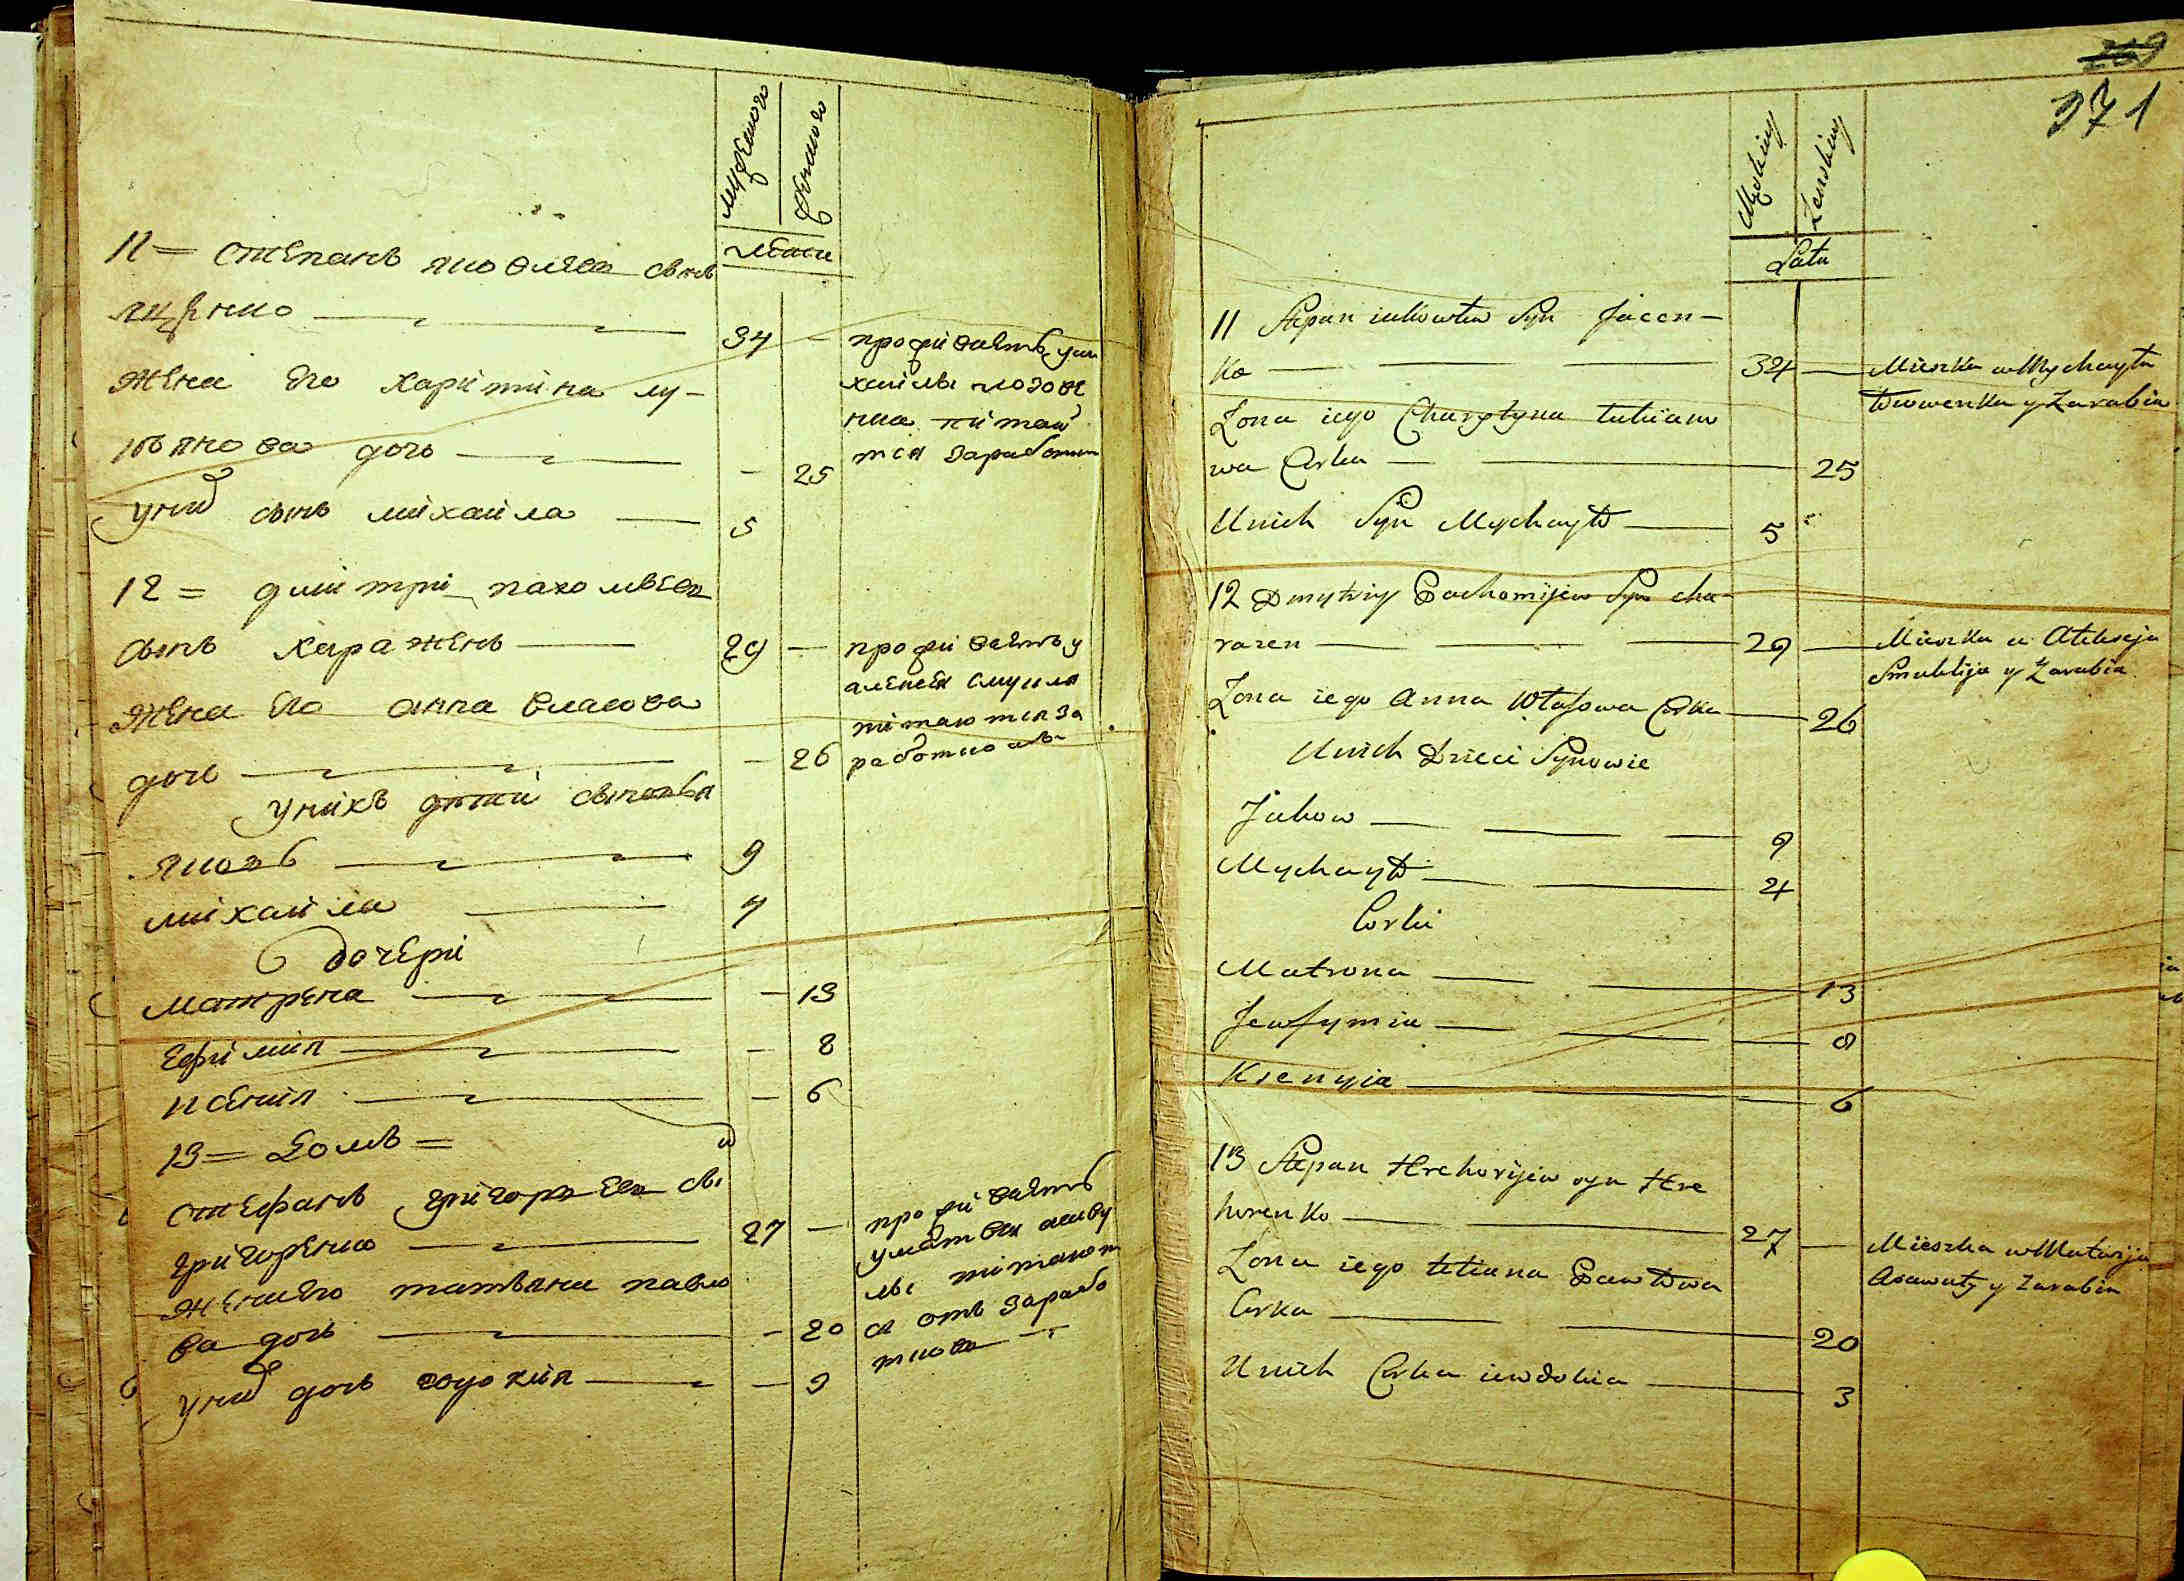 мужского
женского
лѣта
11 = степанъ яковлевъ сынъ
яценко 34 – проживаетъ у ми
хайлы вдове
нка питает
тся заработки
жена его харитина лу–
кьянова дочь – 25
у них сынъ михайла 5
12 = дмитри пахомьевъ
сынъ харажень 29 – проживаетъ у
алексея смукля
питаются за
работкомъ
жена его анна власова
дочь – 26
у нихъ дѣтей сыновья
яковъ 9
михайла 4
дочери
матрена – 13
ефимия – 8
ксения – 6
13 = Домъ =
стефанъ григорьевъ сы
григоренко 27 – проживаетъ
у матвея асаву
лы питают
ся отъ зарабо
тковъ
жена его татьяна павло
ва дочь – 20
у них дочь евдокия – 3
269
371
Męskiey
Żenskiey
Lata
11 Stepan iakowlew Syn Jacen–
ko 34 – Mieszka u Mychayła
Wdowenka y Zarabia
Żona iego Charytyna łukianо
wa Corka 25
U nich Syn Mychayło 5
12 Dmytriy Pachomijew Syn cha
razen 29 – Mieszka u Alekseja
Smuklija y Zarabia
Żona iego Anna Własowa Corka 26
U nich Dzieci Synowie
Jakow 9
Mychayło 4
Corki
Matrona 13
Jewfymia 8
Ksenyia 6
13 Stepan Hrehorijew syn Hre
horenko 27 – Mieszka u Matwija
Asawuły y zarabia
Żona iego tetiana Pawłowa
Corka 20
U nich Corka iewdokia 3